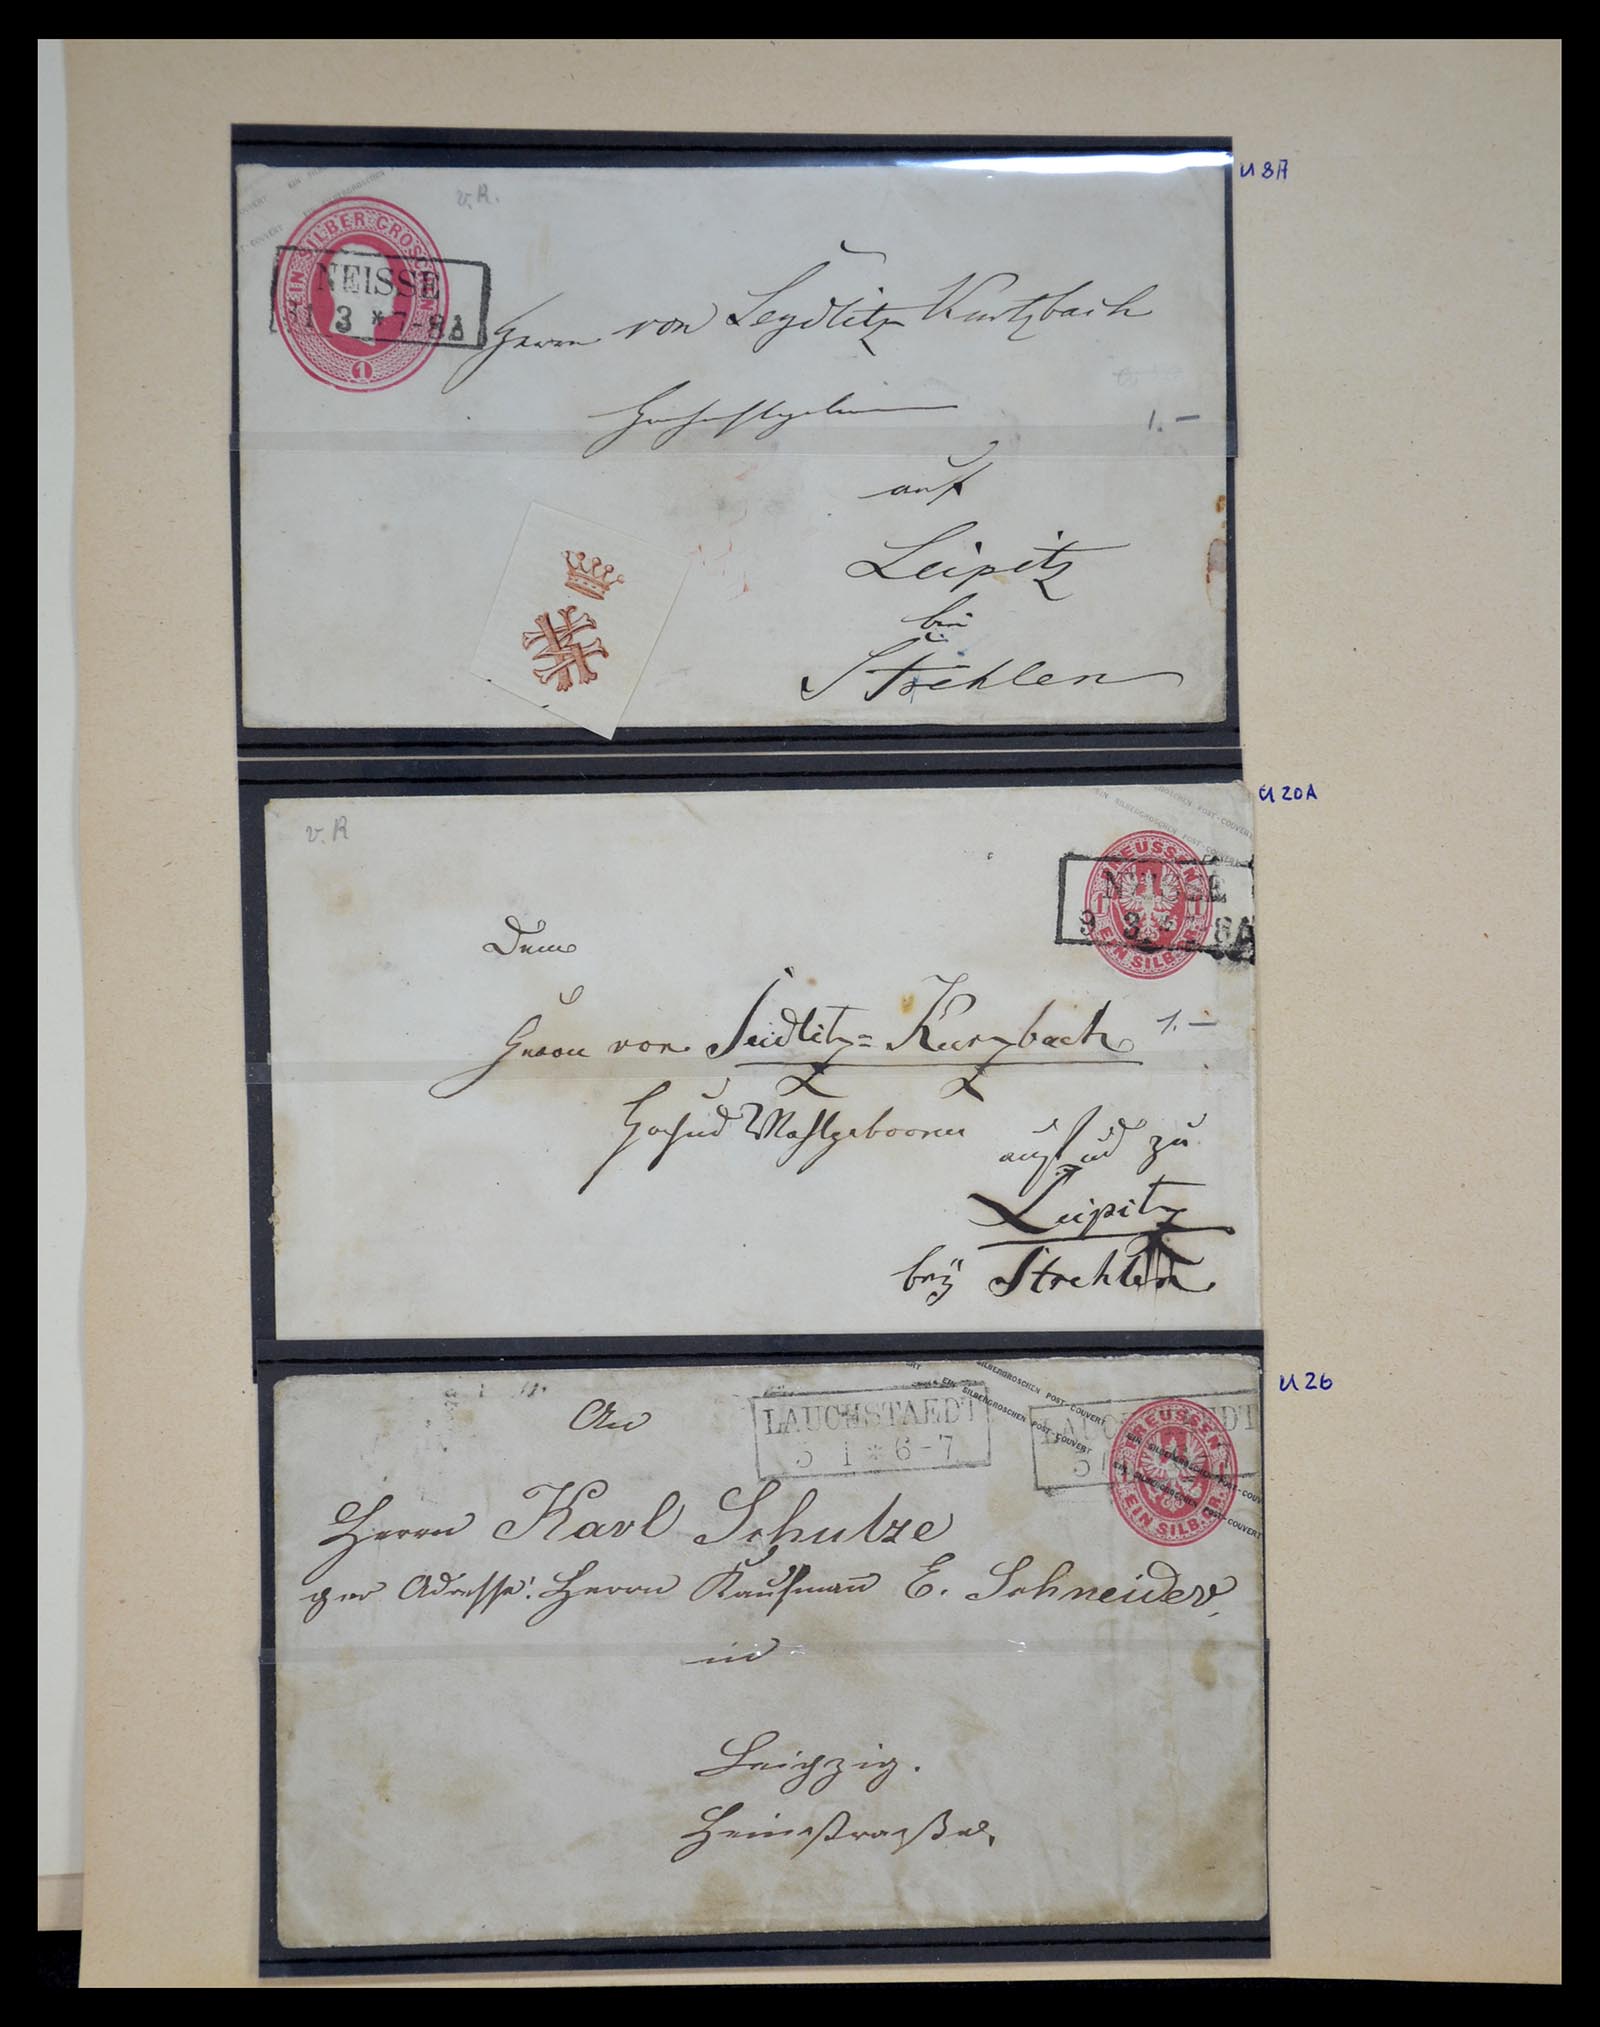 U 8A
v. R.
EIN SILBER GROSCHEN
1
NEISSE
31 3 * 7-8A
Herrn von Seydlitz Kurtzbach
1.-
auf
Leipitz
bei
Strehlen
U 20A
v. R
EIN SILBERGROSCHEN POST-COUVERT
PREUSSEN
1 1
EIN SILB. GR.
NEISSE
9 3 * 8A
Dem
Herrn von Seidlitz=Kurzbach
1.-
Hochund Wohlgeboren
auf und zu
Leipitz
bey Strehlen
U 26
SILBERGROSCHEN POST-COUVERT
EIN SILBERGROSCHEN POST-COUVERT
EIN SILBERGROSCHEN POST-COUVERT
PREUSSEN
1 1
EIN SILB. GR.
An
LAUCHSTAEDT
5 1 * 6-7
LAUCHSTAEDT
5
Herrn Karl Schulze
per Adresse: Herrn Kaufmann E. Schneider,
in
Leipzig.